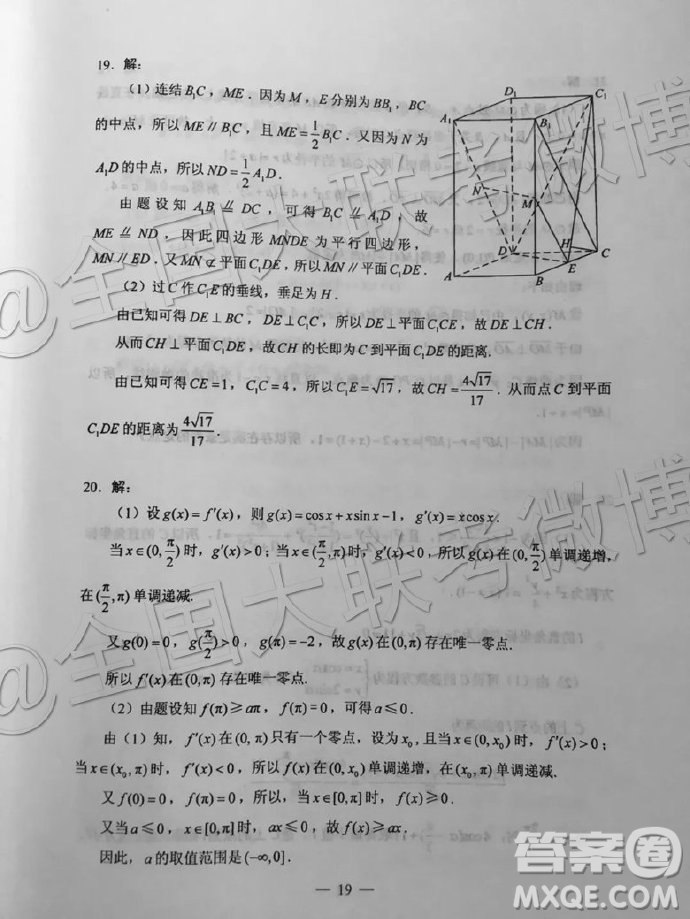 19. 解:
(1) 连结 B₁C, ME. 因为 M, E 分别为 BB₁, BC
的中点, 所以 ME∥B₁C, 且 ME=1/2 B₁C. 又因为 N 为
A₁D 的中点, 所以 ND=1/2 A₁D.
由题设知 A₁B₁ ∥= DC, 可得 B₁C ∥= A₁D, 故
ME ∥= ND, 因此四边形 MNDE 为平行四边形,
MN∥ED. 又 MN⊄平面 C₁DE, 所以 MN∥平面 C₁DE.
(2) 过 C 作 C₁E 的垂线, 垂足为 H.
由已知可得 DE⊥BC, DE⊥C₁C, 所以 DE⊥平面 C₁CE, 故 DE⊥CH.
从而 CH⊥平面 C₁DE, 故 CH 的长即为 C 到平面 C₁DE 的距离.
由已知可得 CE=1, C₁C=4, 所以 C₁E=√17, 故 CH=4√17/17. 从而点 C 到平面
C₁DE 的距离为 4√17/17.
D₁
C₁
A₁
B₁
N
M
D
H
C
A
B
E
20. 解:
(1) 设 g(x)=f′(x), 则 g(x)=cosx+xsinx−1, g′(x)=xcosx.
当 x∈(0,π/2) 时, g′(x)>0; 当 x∈(π/2,π) 时, g′(x)<0, 所以 g(x) 在 (0,π/2) 单调递增,
在 (π/2,π) 单调递减.
又 g(0)=0, g(π/2)>0, g(π)=−2, 故 g(x) 在 (0,π) 存在唯一零点.
所以 f′(x) 在 (0,π) 存在唯一零点.
(2) 由题设知 f(π)≥aπ, f(π)=0, 可得 a≤0.
由 (1) 知, f′(x) 在 (0,π) 只有一个零点, 设为 x₀, 且当 x∈(0,x₀) 时, f′(x)>0;
当 x∈(x₀,π) 时, f′(x)<0, 所以 f(x) 在 (0,x₀) 单调递增, 在 (x₀,π) 单调递减.
又 f(0)=0, f(π)=0, 所以, 当 x∈[0,π] 时, f(x)≥0.
又当 a≤0, x∈[0,π] 时, ax≤0, 故 f(x)≥ax.
因此, a 的取值范围是 (−∞,0].
— 19 —
@全国大联考微博
@全国大联考微博
答案圈
MXQE.COM